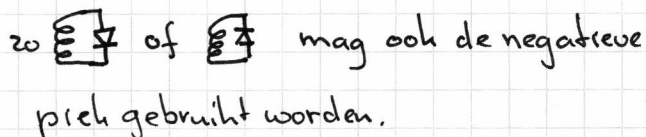 zo of mag ook de negatieve
piek gebruikt worden.